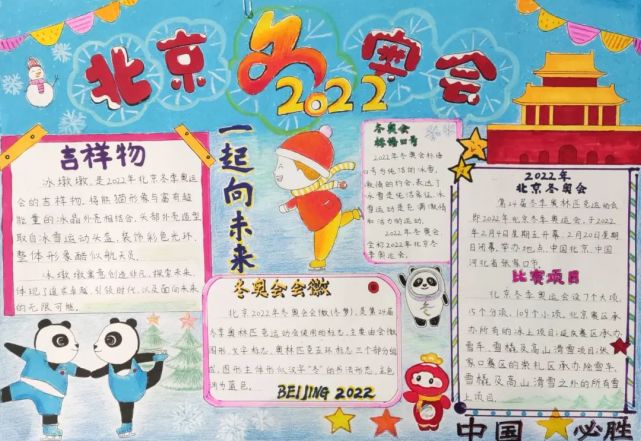 北京冬奥会
2022
吉祥物
冰墩墩，是2022年北京冬季奥运
会的吉祥物。将熊猫形象与富有超
能量的冰晶外壳相结合，头部外壳造型
取自冰雪运动头盔，装饰彩色光环，
整体形象酷似航天员。
冰墩墩寓意创造非凡、探索未来，
体现了追求卓越、引领时代，以及面向未来
的无限可能。
一起向未来
冬奥会
2022年冬奥会
号为纯洁的冰雪，
激情的约会，表达了
冰雪是纯洁象征，冰
雪运动是充满激情
和活力的运动。
2022年冬奥会
全称2022年北京冬
季奥运会。
2022年
北京冬奥会
第24届冬季奥林匹克运动会
即2022年北京冬季奥运会，于2022
年2月4日星期五开幕，2月20日星期
日闭幕，举办地点：中国北京、中国
河北省张家口市。
比赛项目
北京冬季奥运会设7个大项，
15个分项，109个小项。北京赛区承
办所有的冰上项目；延庆赛区承办
雪车、雪橇及高山滑雪项目；张
家口赛区的崇礼区承办除雪车、
雪橇及高山滑雪之外的所有雪
上项目。
冬奥会会徽
北京2022年冬奥会会徽(冬梦)，是第24届
冬季奥林匹克运动会使用的标志，主要由会徽
图形、文字标志、奥林匹克五环标志三个部分组
成，图形主体形似汉字“冬”的书法形态，主色
调为蓝色。
BEIJING 2022
中国必胜